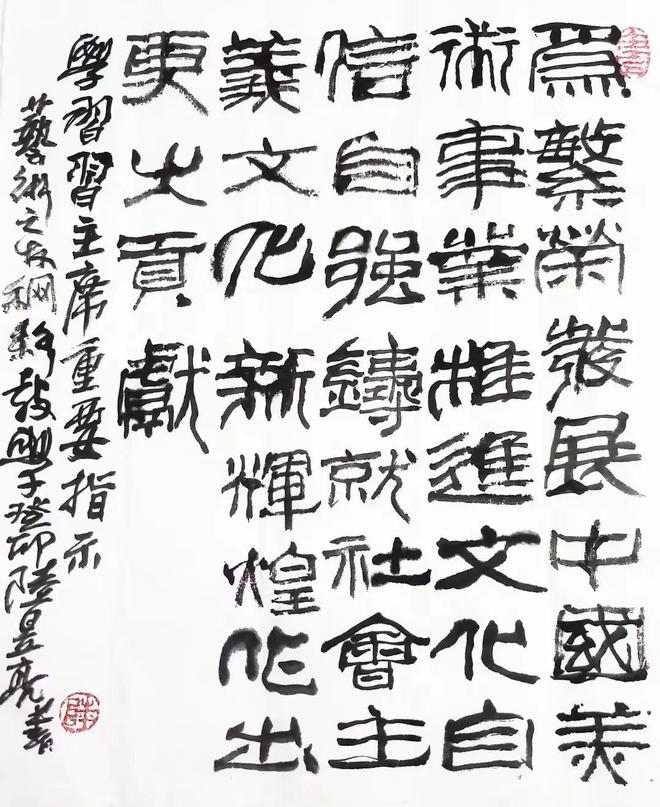 為繁榮發展中國美
術事業推進文化自
信自強鑄就社會主
義文化新輝煌作出
更大貢獻
學習習主席重要指示
藝術之 于癸卯陸昱亮書